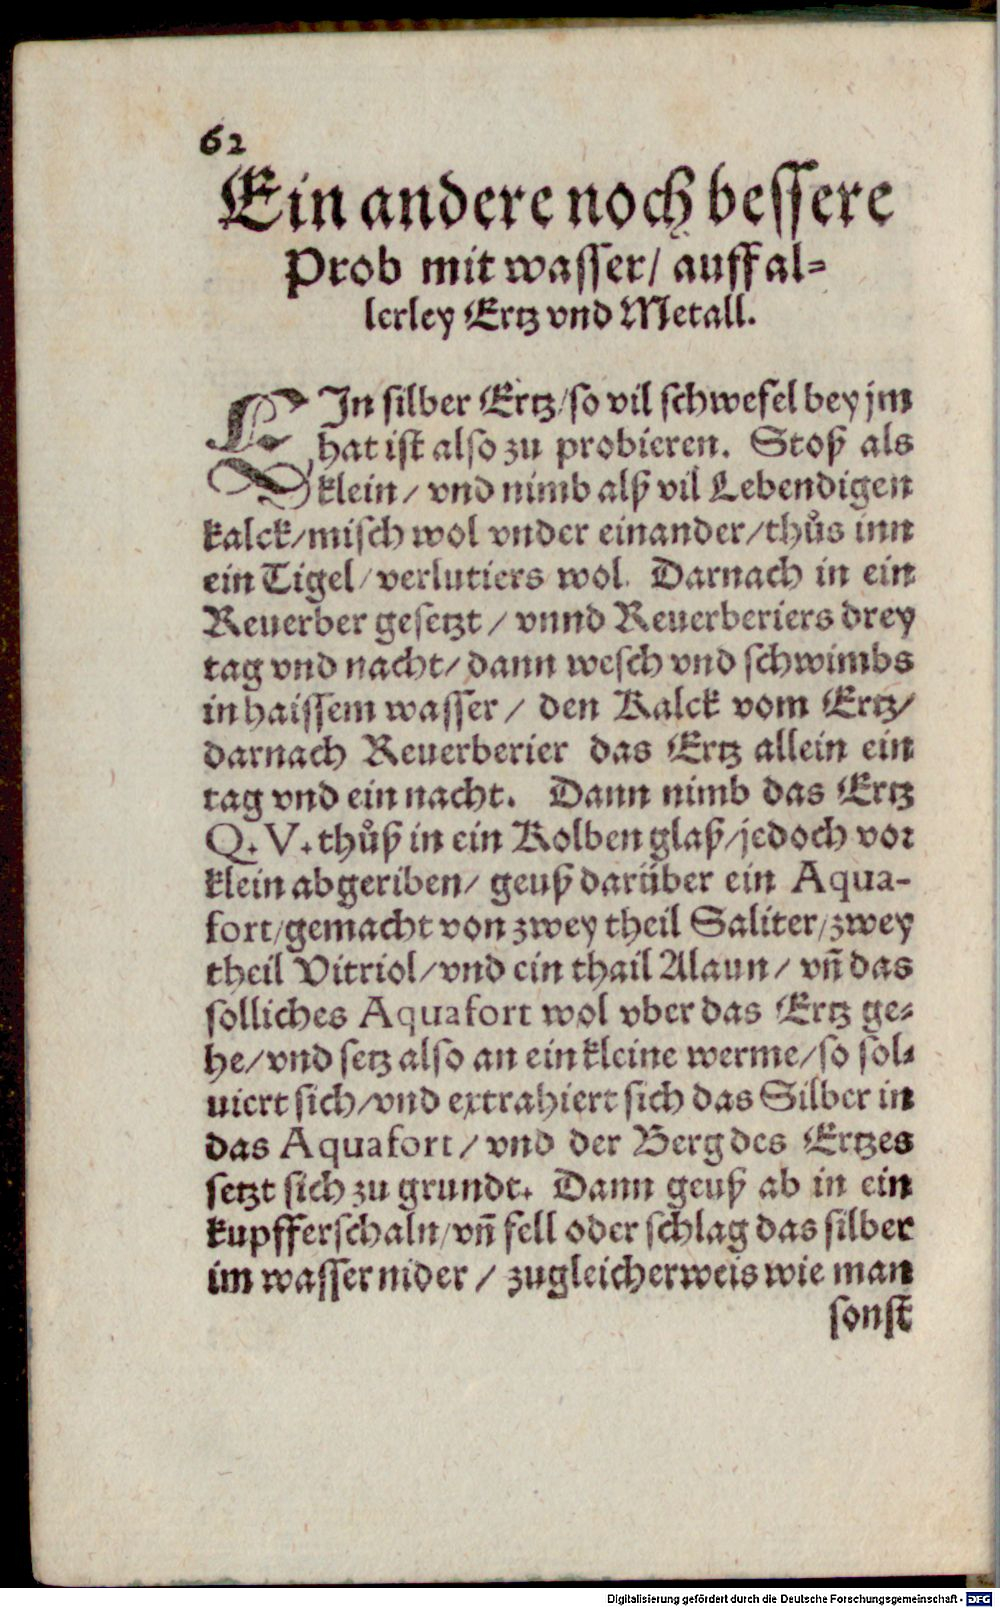 62
Ein andere noch bessere
Prob mit wasser/ auff al-
lerley Ertz vnd Metall.
EIn silber Ertz/so vil schwefel bey jm
hat ist also zu probieren. Stoß als
klein/ vnd nimb alß vil Lebendigen
kalck/misch wol vnder einander/thůs inn
ein Tigel/verlutiers wol. Darnach in ein
Reuerber gesetzt/ vnnd Reuerberiers drey
tag vnd nacht/dann wesch vnd schwimbs
in haissem wasser/ den Kalck vom Ertz/
darnach Reuerberier das Ertz allein ein
tag vnd ein nacht. Dann nimb das Ertz
Q. V. thůß in ein Kolben glaß/jedoch vor
klein abgeriben/ geuß darüber ein Aqua-
fort/gemacht von zwey theil Saliter/zwey
theil Vitriol/vnd ein thail Alaun/ vñ das
solliches Aquafort wol vber das Ertz ge-
he/vnd setz also an ein kleine werme/so sol-
uiert sich/vnd extrahiert sich das Silber in
das Aquafort/ vnd der Berg des Ertzes
setzt sich zu grundt. Dann geuß ab in ein
kupfferschaln/vñ fell oder schlag das silber
im wasser nider/ zugleicherweis wie man
sonst
Digitalisierung gefördert durch die Deutsche Forschungsgemeinschaft - DFG